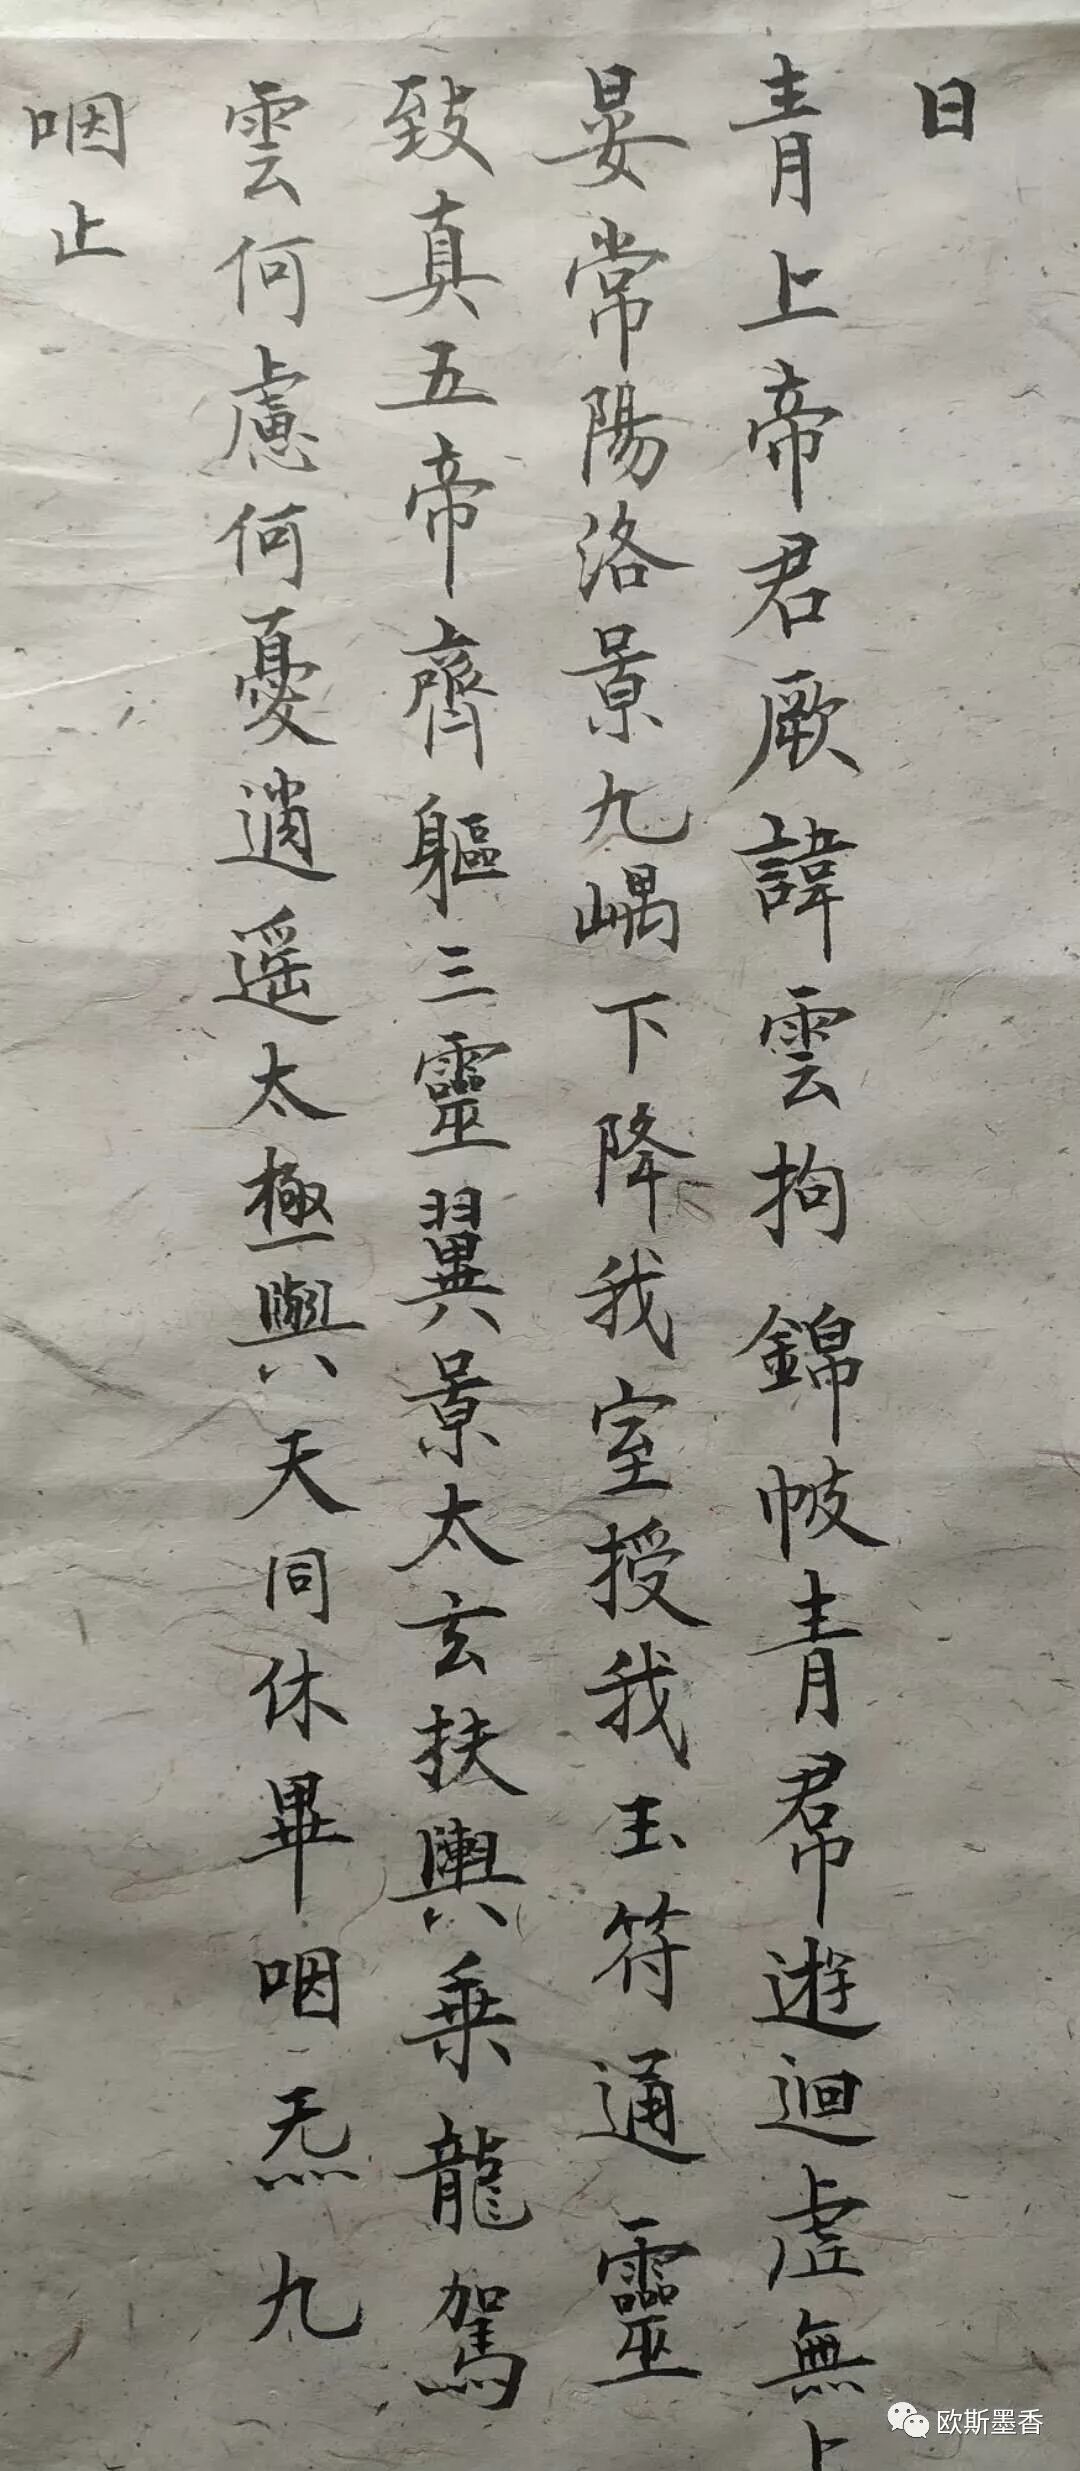 曰
青上帝君厥諱雲拘錦帔青帬遊迴虛無上
晏常陽洛景九嵎下降我室授我玉符通靈
致真五帝齊軀三靈翼景太玄扶輿乗龍駕
雲何慮何憂逍遥太極與天同休畢咽炁九
咽止
欧斯墨香